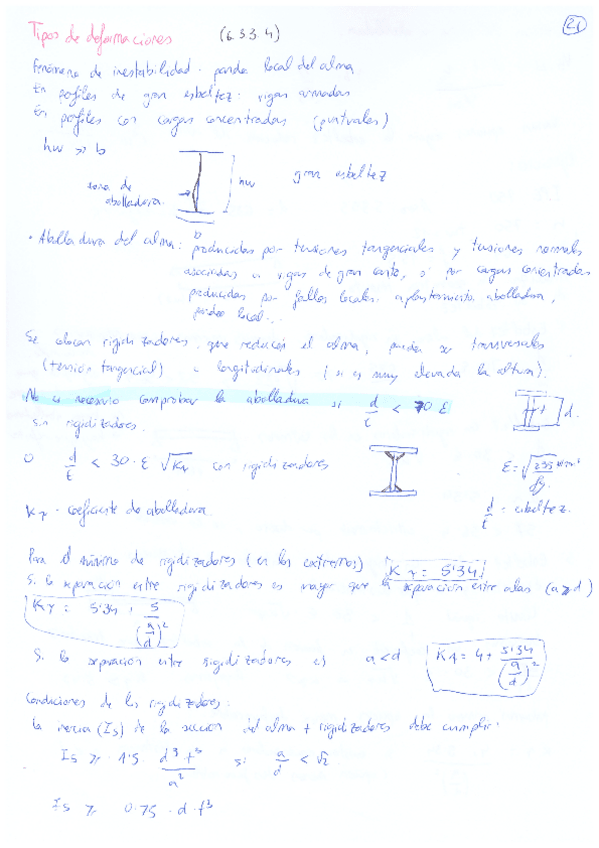 21
Tipos de deformaciones (6 3 3 4)
Fenómeno de inestabilidad · pandeo local del alma
En perfiles de gran esbeltez · vigas armadas
En perfiles con cargas concentradas (puntuales)
hw >> b
zona de abolladura.
hw
gran esbeltez
b
• Abolladura del alma: producidas por tensiones tangenciales y tensiones normales
asociadas a vigas de gran canto, o por cargas concentradas
producidas por fallos locales: aplastamiento, abolladura,
pandeo local...
Se colocan rigidizadores, que reducen el alma, pueden ser transversales
(tensión tangencial) o longitudinales (si es muy elevada la altura).
No es necesario comprobar la abolladura si d/t < 70 ε
sin rigidizadores.
d.
o d/t < 30·ε √Kτ con rigidizadores
ε = √235/fy
Kτ · coeficiente de abolladura.
d/t = esbeltez.
Para el mínimo de rigidizadores (en los extremos) Kτ = 5'34
Si la separación entre rigidizadores es mayor que la separación entre alas (a ≥ d)
Kτ = 5'34 + 5/(a/d)²
Si la separación entre rigidizadores es a < d Kτ = 4 + 5'34/(a/d)²
Condiciones de los rigidizadores:
La inercia (Is) de la sección del alma + rigidizadores debe cumplir:
Is ≥ 1'5 d³ t³/a² si a/d < √2
Is ≥ 0'75 · d · t³